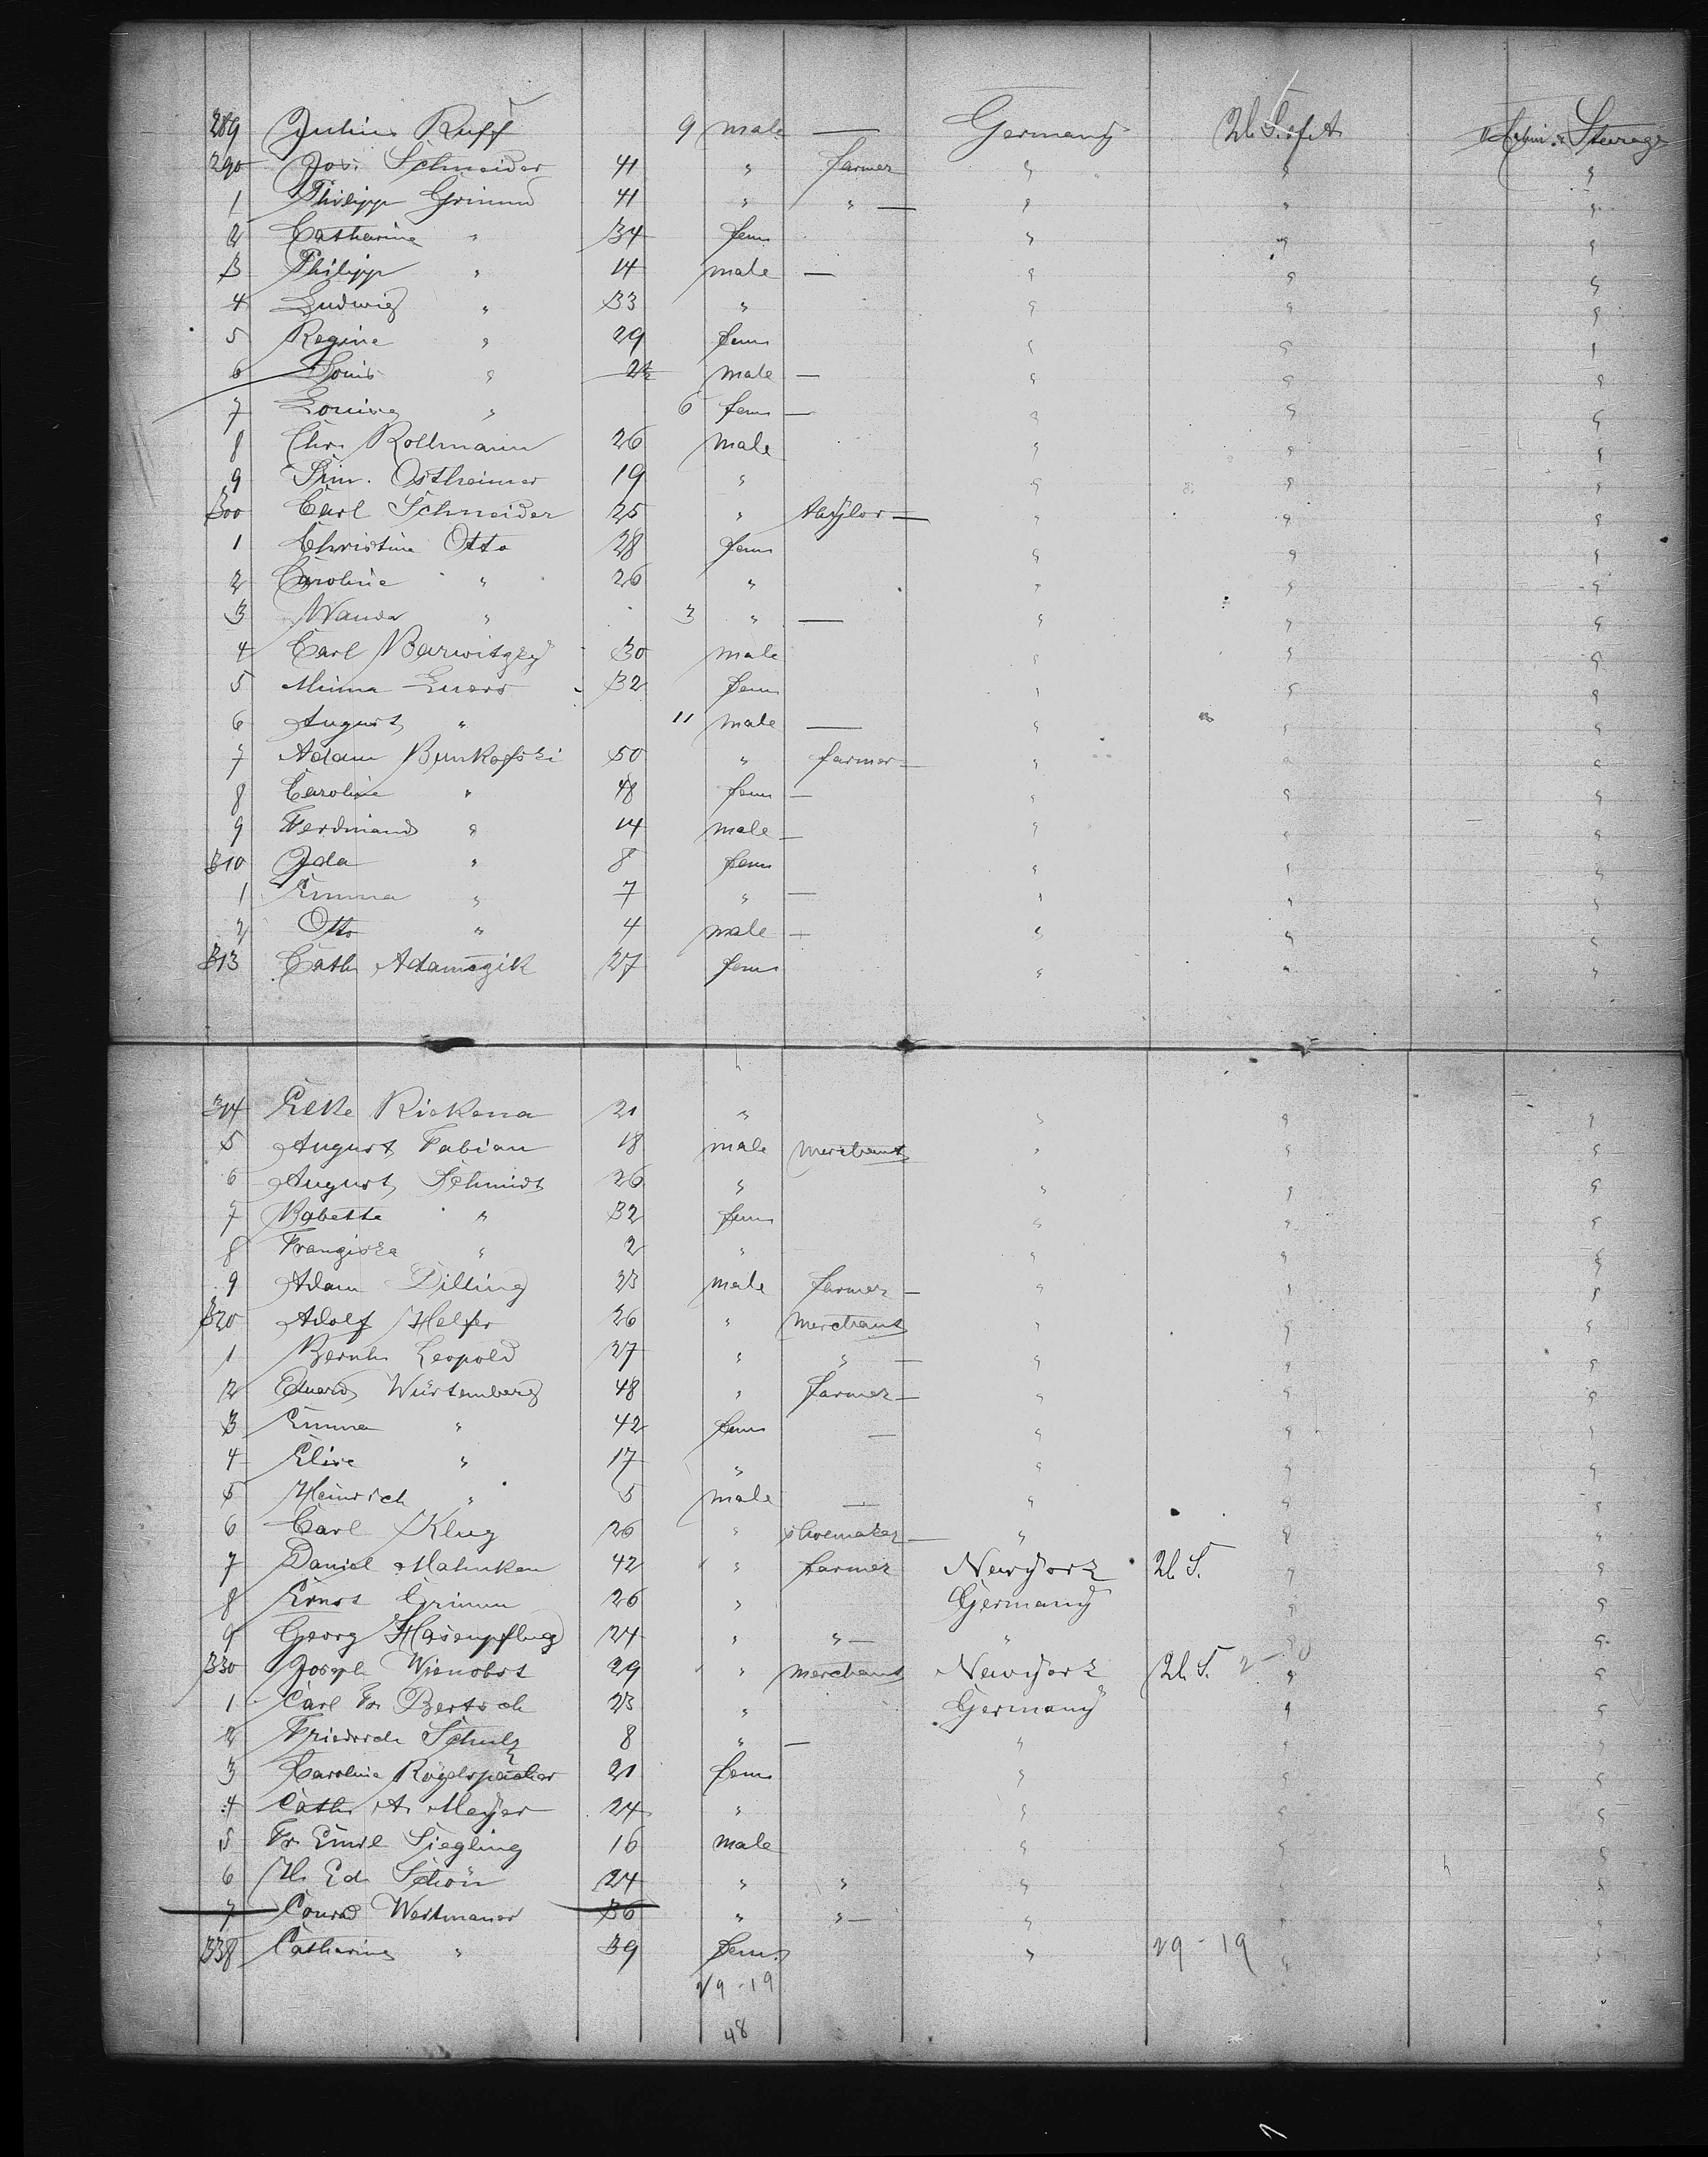 289 Julius Ruff 9 male — Germany U. S. of A. Steerage
290 Jos. Schneider 41 " farmer " " "
1 Philipp Grimm 41 " " — " " "
2 Catharine " 34 fem " " "
3 Philipp " 14 male — " " "
4 Ludwig " 33 " " " "
5 Regine " 29 fem " " "
6 Louis " male — " " "
7 Louise " 6 fem — " " "
8 Chr. Rollmann 26 male " " "
9 Sim. Ostheimer 19 " " " "
300 Carl Schneider 25 " taylor — " " "
1 Christine Otto 28 fem " " "
2 Caroline " 26 " " " "
3 Wanda " 3 " — " " "
4 Carl 30 male " " "
5 Minna Evers 32 fem " " "
6 August " 11 male — " " "
7 Adam Bunkofski 50 " farmer — " " "
8 Caroline " 48 fem — " " "
9 Ferdinand " 14 male — " " "
310 Ida " 8 fem " " "
1 Emma " 7 " — " " "
2 Otto " 4 male — " " "
313 Cath. Adamczik 27 fem " " "
314 Eelke Riekena 21 " " " "
5 August Fabian 18 male merchant " " "
6 August Schmidt 26 " " " "
7 Babette " 32 fem " " "
8 Franziska " 2 " " " "
9 Adam Dilling 23 male farmer — " " "
320 Adolf Helfer 26 " merchant " " "
1 Bernh. Leopold 27 " " — " " "
2 Eduard Würtemberg 48 " farmer — " " "
3 Emma " 42 fem — " " "
4 Elise " 17 " " " "
5 Heinrich " 5 male — " " "
6 Carl Klug 26 " shoemaker — " " "
7 Daniel Mahnken 42 " farmer New York U. S. " "
8 Ernst Grimm 26 " Germany " "
9 Georg Hasenpflug 24 " " — " " "
330 Joseph Wienobst 29 " merchant New York U. S. 2 — 0 " "
1 Carl Fr. Bertsch 23 " Germany " "
2 Friedrich Schulz 8 " — " " "
3 Caroline 21 fem " " "
4 Cath. A. Meyer 24 " " " "
5 Fr. Emil Siegling 16 male " " "
6 H. Ed. Schön 24 " " " " "
7 Conrad Westmaner 36 " " — " " "
338 Catharine " 39 fem. " 29 - 19 " "
29 - 19
48